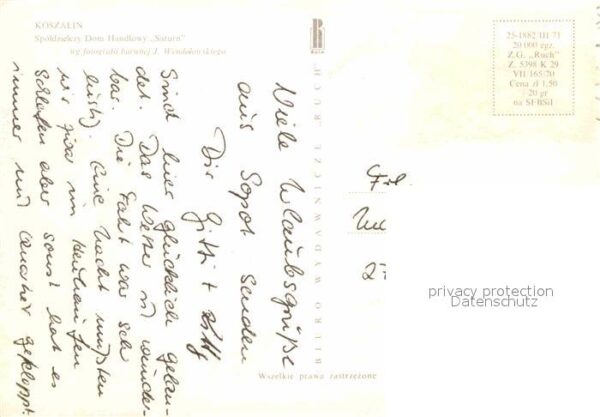 KOSZALIN
Spółdzielczy Dom Handlowy „Saturn"
wg fotografii barwnej J.
25-1882 III 71
20 000 egz.
Z.G. „Ruch"
Z. 5398 K 29
VII/165/70
Cena zł 1,50
+ 20 gr
na SFBSiI
BIURO WYDAWNICZE „RUCH"
Wszelkie prawa zastrzeżone
Viele Urlaubsgrüße
aus Sopot senden
Dir Gitti +
Sind hier glücklich gelan-
det. Das Wetter ist wunder-
bar. Die Fahrt war sehr
lustig. Eine Nacht mußten
wir zwar im Heuhaufen
schlafen aber sonst hat es
immer und
geklappt.
27
privacy protection
Datenschutz